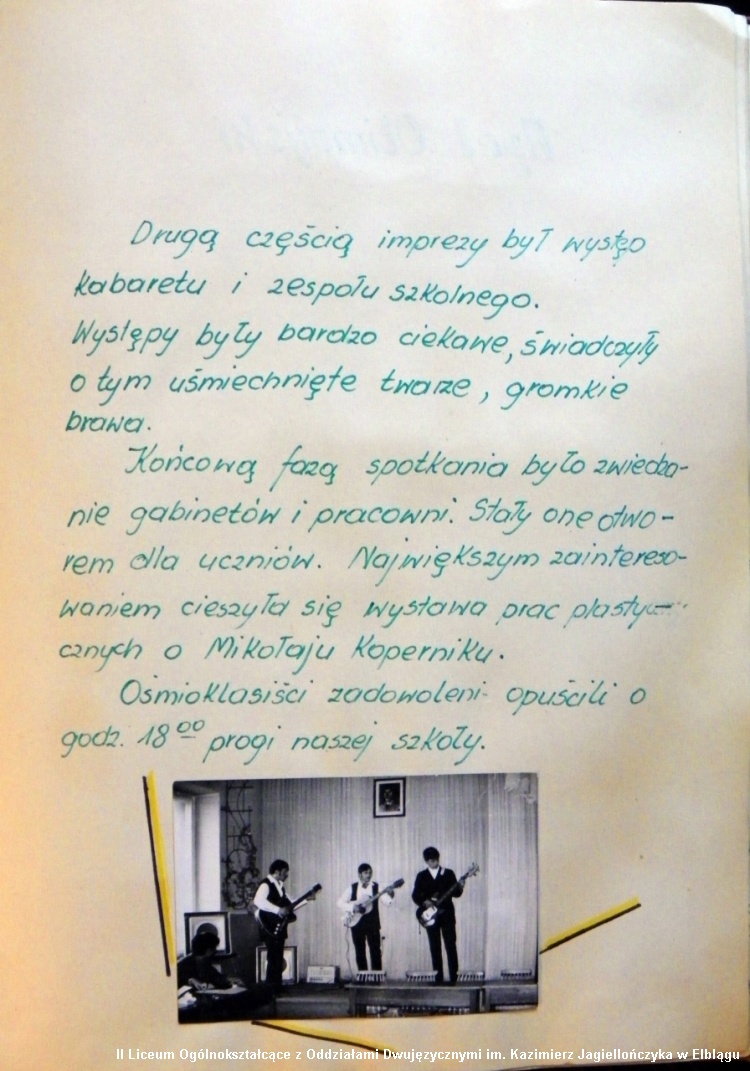 Drugą częścią imprezy był występ
kabaretu i zespołu szkolnego.
Występy były bardzo ciekawe, świadczyły
o tym uśmiechnięte twarze, gromkie
brawa.
Końcową fazą spotkania było zwiedza-
nie gabinetów i pracowni. Stały one otwo-
rem dla uczniów. Największym zaintereso-
waniem cieszyła się wystawa prac plasty
cznych o Mikołaju Koperniku.
Ośmioklasiści zadowoleni opuścili o
godz. 18⁰⁰ progi naszej szkoły.
II Liceum Ogólnokształcące z Oddziałami Dwujęzycznymi im. Kazimierz Jagiellończyka w Elblągu